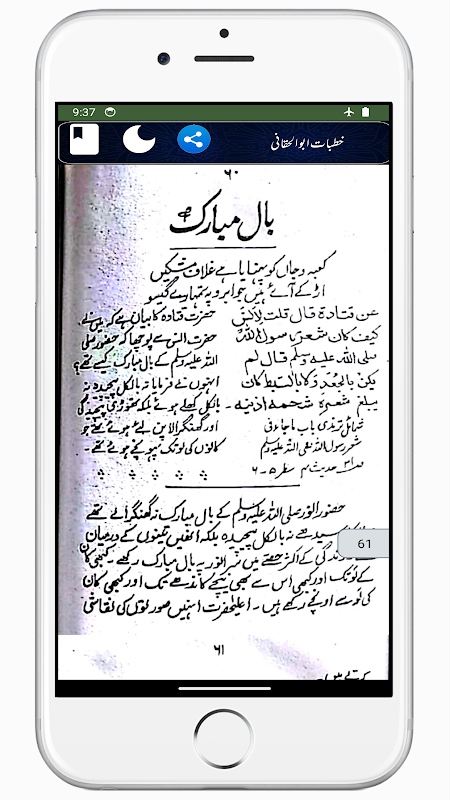 9:37
خطبات ابوالحقانی
۶۰
بال مبارک
کعبہ وجاں کو پہنایا ہے غلاف مشکیں
اڑ کے آئے ہیں جو ابرو پہ تمہارے گیسو
عن قتادة قال قلت لانس
كيف كان شعر رسول الله
صلى الله عليه وسلم قال لم
يكن بالجعد ولا بالسبط كان
يبلغ شعره شحمة اذنيه ۔
شمائل ترمذی باب ما جاء فی
شعر رسول اللہ صلی اللہ علیہ وسلم
حدیث سطر ۵ ۔ ۶
حضرت قتادہ کا بیان ہے کہ میں نے
حضرت انس سے پوچھا کہ حضور صلی
اللہ علیہ وسلم کے بال مبارک کیسے تھے؟
انہوں نے فرمایا نہ بالکل پیچیدہ نہ
بالکل کھلے ہوئے بلکہ تھوڑی پیچیدگی
اور گھنگرالا پن لئے ہوئے تھے جو
کانوں کی لو تک پہونچے ہوئے تھے ۔
حضور انور صلی اللہ علیہ وسلم کے بال مبارک نہ گھنگرالے تھے
سیدھے نہ بالکل پیچیدہ بلکہ انھیں تینوں کے درمیان
زندگی کے اکثر حصے میں سر انور پہ بال مبارک رکھے کبھی کان
کے لو تک اور کبھی اس سے بھی نیچے کاندھے تک اور کبھی کان
کی لو سے اونچے رکھے ہیں ۔ اعلیٰحضرت انہیں صورتوں کی نقاشی
61
۶۱
کرتے ہیں۔